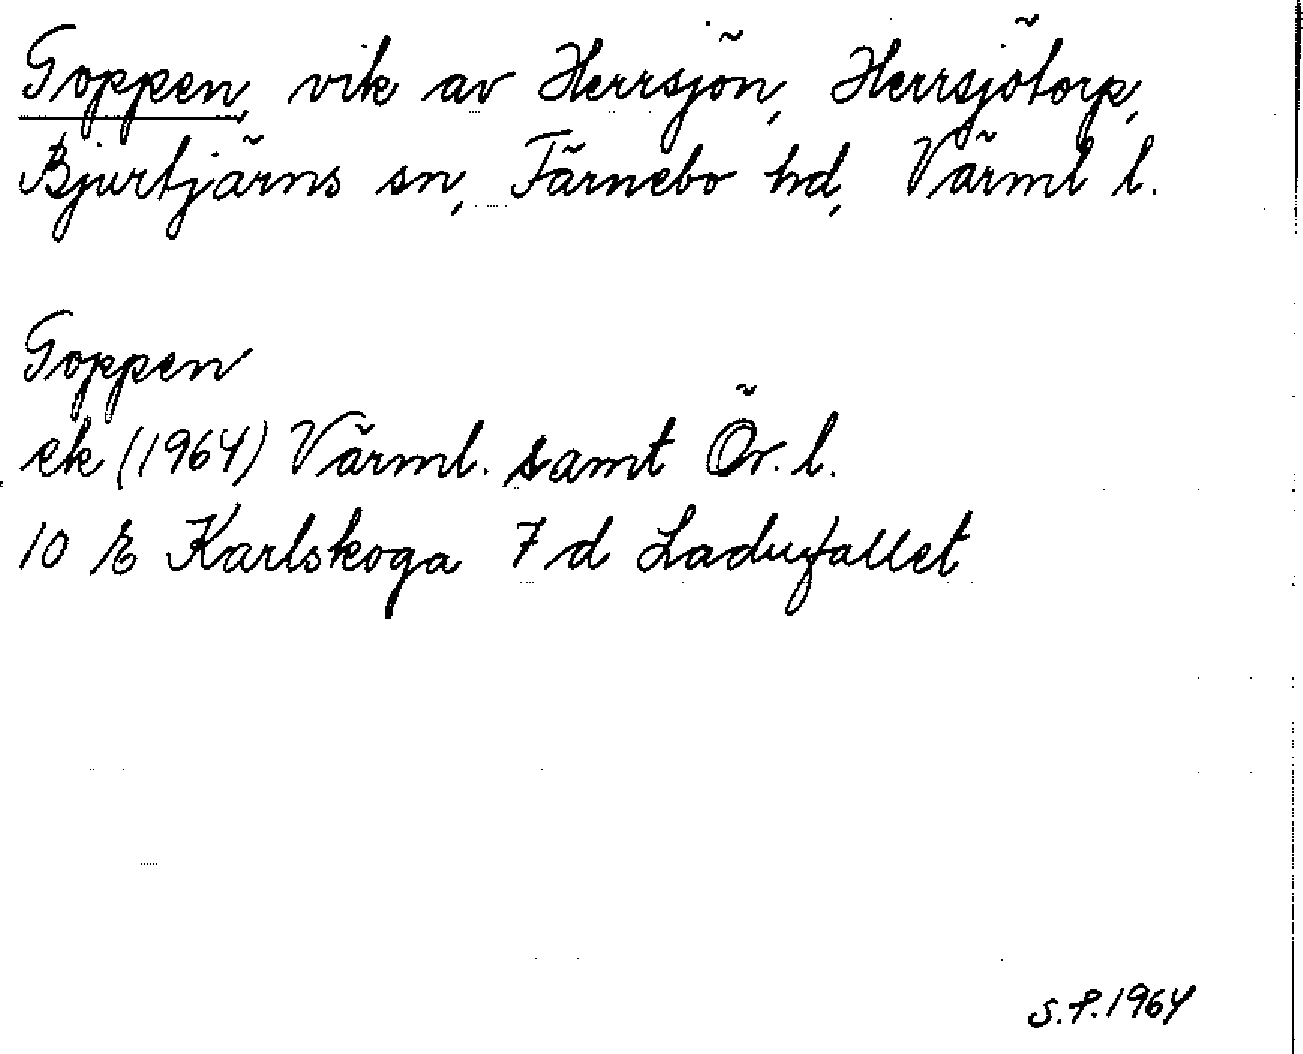 Goppen, vik av Herrsjön, Herrsjötorp,
Bjurtjärns sn, Färnebo hd, Värml l.
Goppen
ek (1964) Värml. samt Ör. l.
10 E Karlskoga 7 d Ladufallet
S.P. 1964